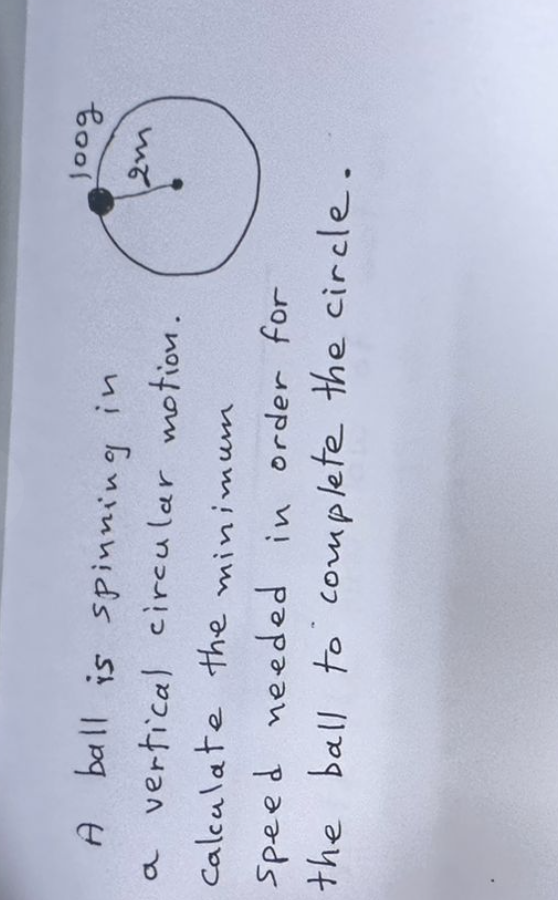 A ball is spinning in
a vertical circular motion.
Calculate the minimum
speed needed in order for
the ball to complete the circle.
100g
2m